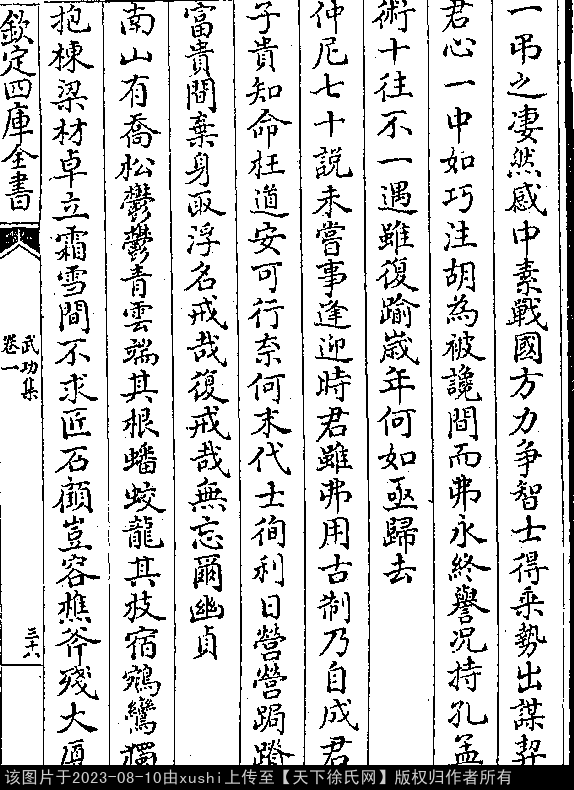 一弔之凄然感中素戰國方力争智士得乗勢出謀契
君心一中如巧注胡為被讒間而弗永終譽况持孔孟
術十往不一遇雖復踰嵗年何如亟歸去
仲尼七十説未嘗事逢迎時君雖弗用古制乃自成君
子貴知命枉道安可行奈何末代士徇利日營營跼蹐
富貴間棄身取浮名戒哉復戒哉無忘爾幽貞
南山有喬松鬱鬱青雲端其根蟠蛟龍其枝宿鵷鸞獨
抱棟梁材卓立霜雪間不求匠石顧豈容樵斧殘大厦
欽定四庫全書
武功集
卷一
三十六
该图片于2023-08-10由xushi上传至【天下徐氏网】版权归作者所有